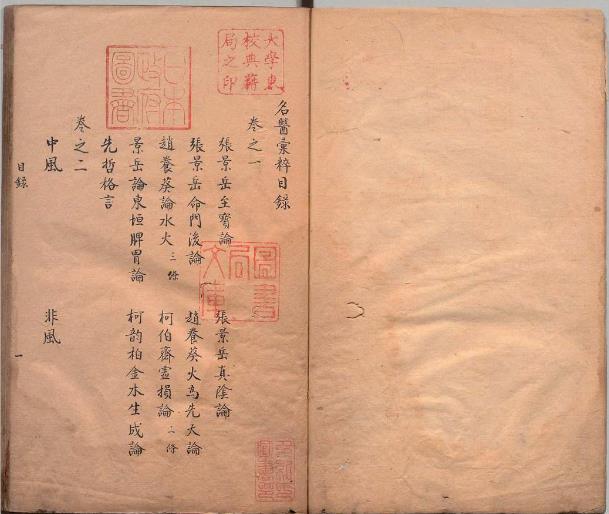 名醫彙粹目録
卷之一
張景岳至寶論
張景岳真陰論
張景岳命門後論
趙養葵火爲先天論
趙養葵論水火三條
柯伯齋虛損論二條
景岳論東垣脾胃論
柯韵柏金水生成論
先哲格言
卷之二
中風
非風
目錄
一
大學東
校典籍
局之印
日本
政府
圖書
圖書
局
文庫